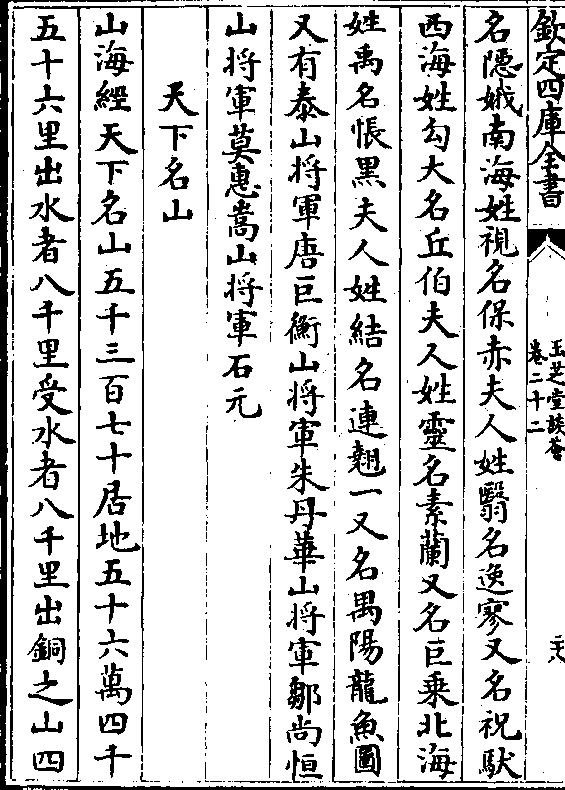 欽定四庫全書
玉芝堂談薈
卷二十二
二六
名隱娥南海姓視名保赤夫人姓翳名逸寥又名祝䭾
西海姓勾大名丘伯夫人姓靈名素蘭又名巨乗北海
姓禹名悵黑夫人姓結名連翹一又名禺陽龍魚圖
又有泰山將軍唐巨衡山將軍朱丹華山將軍鄒尚恒
山將軍莫惠嵩山將軍石元
天下名山
山海經天下名山五千三百七十居地五十六萬四千
五十六里出水者八千里受水者八千里出銅之山四